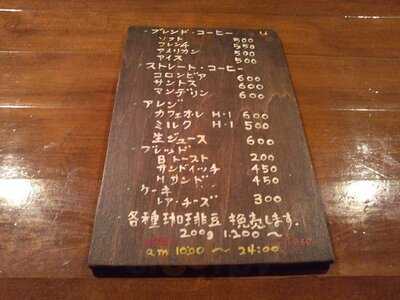 ・ブレンド・コーヒー
ソフト 500
フレンチ 550
アメリカン 500
アイス 500
・ストレート・コーヒー
コロンビア 600
サントス 600
マンデリン 600
・アレンジ
カフェオレ H・I 600
ミルク H・I 500
・生ジュース 600
・ブレッド
Bトースト 200
サンドイッチ 450
Hサンド 450
・ケーキ
レア・チーズ 300
各種珈琲豆挽売します.
200g 1.200 ～
am 10:00 ～ 24:00